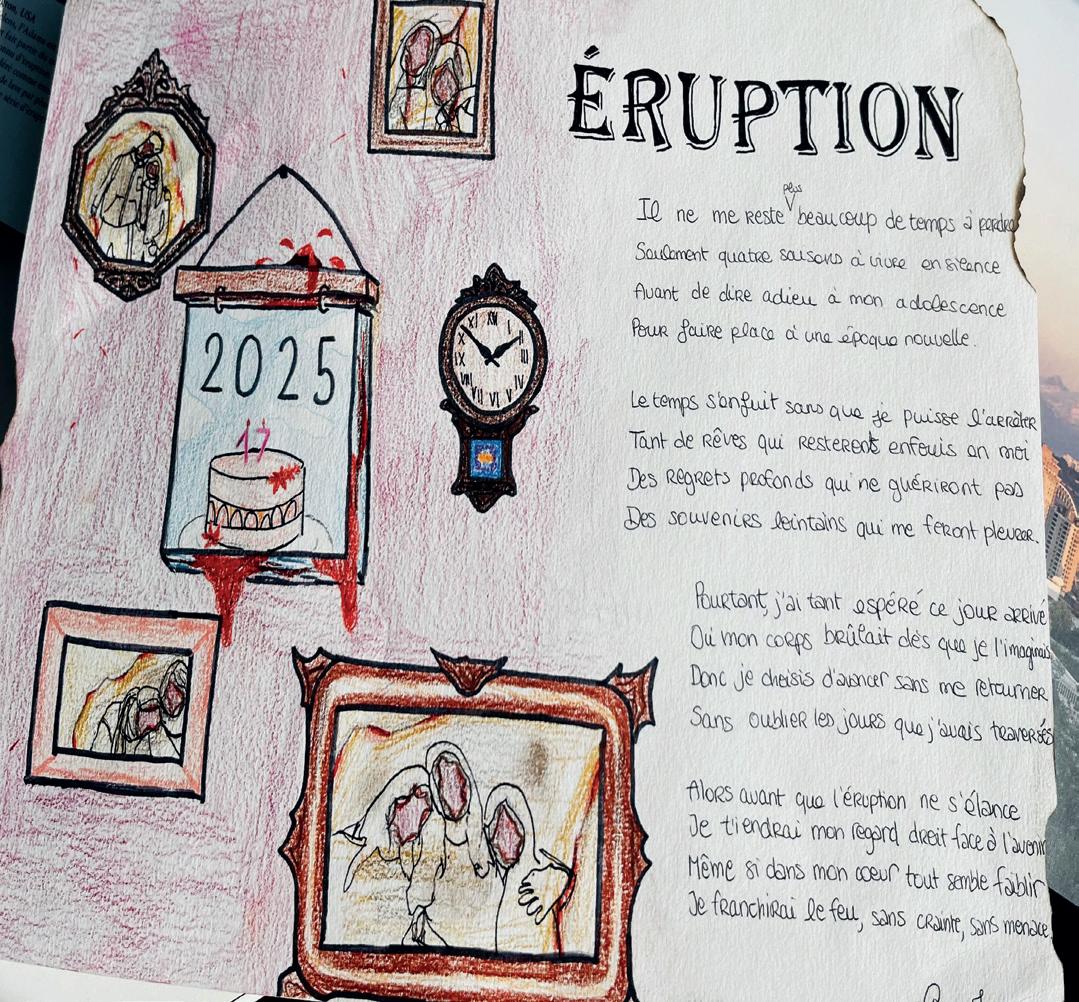 ÉRUPTION
Il ne me reste plus beaucoup de temps à perdre
Seulement quatre saisons à vivre en silence
Avant de dire adieu à mon adolescence
Pour faire place à une époque nouvelle.
Le temps s'enfuit sans que je puisse l'arrêter
Tant de rêves qui resteront enfouis en moi
Des regrets profonds qui ne guériront pas
Des souvenirs lointains qui me feront pleurer.
Pourtant, j'ai tant espéré ce jour arrivé
Où mon corps brûlait dès que je l'imaginais
Donc je choisis d'avancer sans me retourner
Sans oublier les jours que j'avais traversés
Alors avant que l'éruption ne s'élance
Je tiendrai mon regard droit face à l'avenir
Même si dans mon coeur tout semble faiblir
Je franchirai le feu, sans crainte, sans menace.
2025
17
XII
I
II
III
IV
V
VI
VII
VIII
IX
X
XI
USA